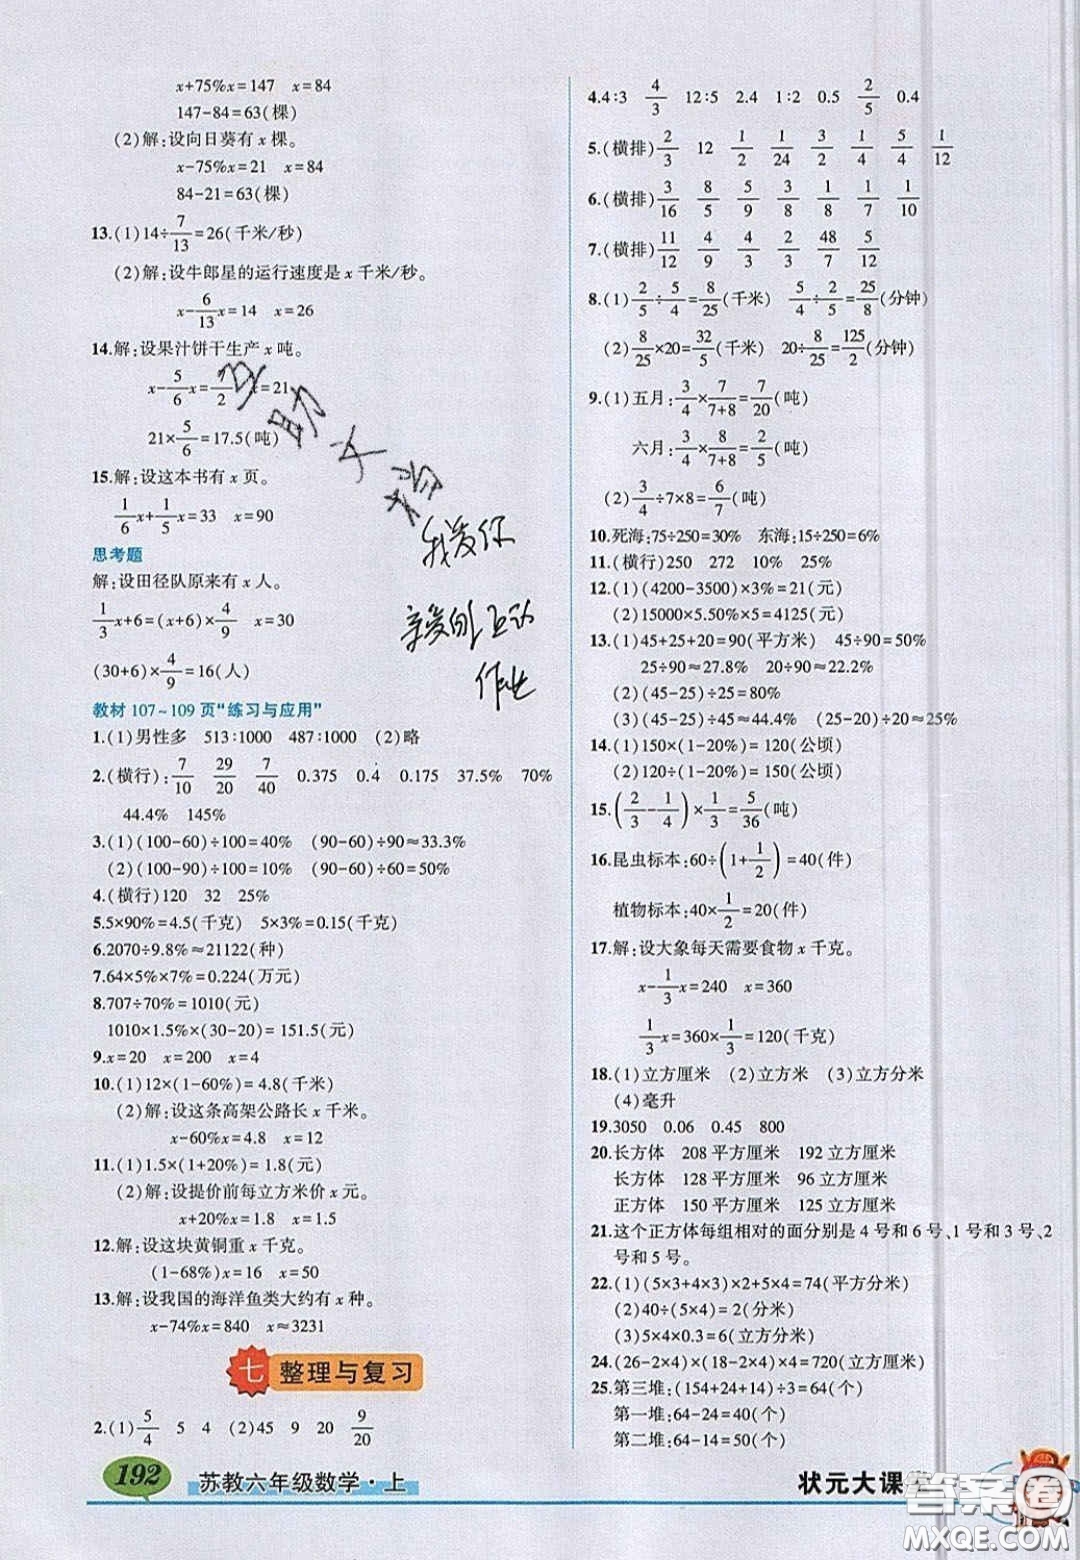 x+75%x=147 x=84
147-84=63(棵)
(2)解:设向日葵有 x 棵。
x-75%x=21 x=84
84-21=63(棵)
13.(1)14÷7/13=26(千米/秒)
(2)解:设牛郎星的运行速度是 x 千米/秒。
x-6/13x=14 x=26
14.解:设果汁饼干生产 x 吨。
x-5/6x=7/2 x=21
21×5/6=17.5(吨)
15.解:设这本书有 x 页。
1/6x+1/5x=33 x=90
思考题
解:设田径队原来有 x 人。
1/3x+6=(x+6)×4/9 x=30
(30+6)×4/9=16(人)
教材 107~109 页“练习与应用”
1.(1)男性多 513∶1000 487∶1000 (2)略
2.(横行):7/10 29/20 7/40 0.375 0.4 0.175 37.5% 70%
44.4% 145%
3.(1)(100-60)÷100=40% (90-60)÷90≈33.3%
(2)(100-90)÷100=10% (90-60)÷60=50%
4.(横行)120 32 25%
5.5×90%=4.5(千克) 5×3%=0.15(千克)
6.2070÷9.8%≈21122(种)
7.64×5%×7%=0.224(万元)
8.707÷70%=1010(元)
1010×1.5%×(30-20)=151.5(元)
9.x=20 x=200 x=4
10.(1)12×(1-60%)=4.8(千米)
(2)解:设这条高架公路长 x 千米。
x-60%x=4.8 x=12
11.(1)1.5×(1+20%)=1.8(元)
(2)解:设提价前每立方米价 x 元。
x+20%x=1.8 x=1.5
12.解:设这块黄铜重 x 千克。
(1-68%)x=16 x=50
13.解:设我国的海洋鱼类大约有 x 种。
x-74%x=840 x≈3231
七 整理与复习
2.(1)5/4 5 4 (2)45 9 20 9/20
4.4∶3 4/3 12∶5 2.4 1∶2 0.5 2/5 0.4
5.(横排)2/3 12 1/2 1/24 3/2 1/4 5/4 1/12
6.(横排)3/16 8/5 5/9 3/8 1/8 1/7 1/10
7.(横排)11/12 4/9 4/3 2/3 48/7 5/12
8.(1)2/5÷5/4=8/25(千米) 5/4÷2/5=25/8(分钟)
(2)8/25×20=32/5(千米) 20÷8/25=125/2(分钟)
9.(1)五月:3/4×7/7+8=7/20(吨)
六月:3/4×8/7+8=2/5(吨)
(2)3/4÷7×8=6/7(吨)
10.死海:75÷250=30% 东海:15÷250=6%
11.(横行)250 272 10% 25%
12.(1)(4200-3500)×3%=21(元)
(2)15000×5.50%×5=4125(元)
13.(1)45+25+20=90(平方米) 45÷90=50%
25÷90≈27.8% 20÷90≈22.2%
(2)(45-25)÷25=80%
(3)(45-25)÷45≈44.4% (25-20)÷20=25%
14.(1)150×(1-20%)=120(公顷)
(2)120÷(1-20%)=150(公顷)
15.(2/3-1/4)×1/3=5/36(吨)
16.昆虫标本:60÷(1+1/2)=40(件)
植物标本:40×1/2=20(件)
17.解:设大象每天需要食物 x 千克。
x-1/3x=240 x=360
1/3x=360×1/3=120(千克)
18.(1)立方厘米 (2)立方米 (3)立方分米
(4)毫升
19.3050 0.06 0.45 800
20.长方体 208 平方厘米 192 立方厘米
长方体 128 平方厘米 96 立方厘米
正方体 150 平方厘米 125 立方厘米
21.这个正方体每组相对的面分别是 4 号和 6 号、1 号和 3 号、2
号和 5 号。
22.(1)(5×3+4×3)×2+5×4=74(平方分米)
(2)40÷(5×4)=2(分米)
(3)5×4×0.3=6(立方分米)
24.(26-2×4)×(18-2×4)×4=720(立方厘米)
25.第三堆:(154+24+14)÷3=64(个)
第一堆:64-24=40(个)
第二堆:64-14=50(个)
互助文档
我爱你
亲爱的互动
作业
192 苏教六年级数学·上
状元大课
答案圈
MXQE.COM